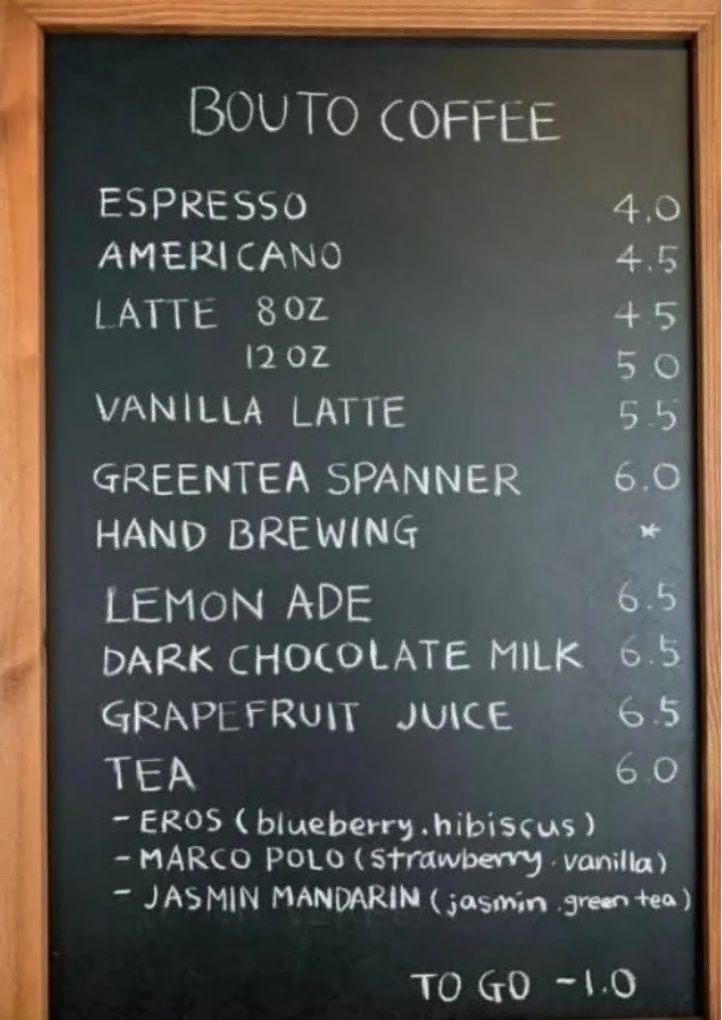 BOUTO COFFEE
ESPRESSO 4.0
AMERICANO 4.5
LATTE 8 OZ 4.5
12 OZ 5.0
VANILLA LATTE 5.5
GREENTEA SPANNER 6.0
HAND BREWING *
LEMON ADE 6.5
DARK CHOCOLATE MILK 6.5
GRAPEFRUIT JUICE 6.5
TEA 6.0
- EROS (blueberry.hibiscus)
- MARCO POLO (strawberry.vanilla)
- JASMIN MANDARIN (jasmin.green tea)
TO GO -1.0